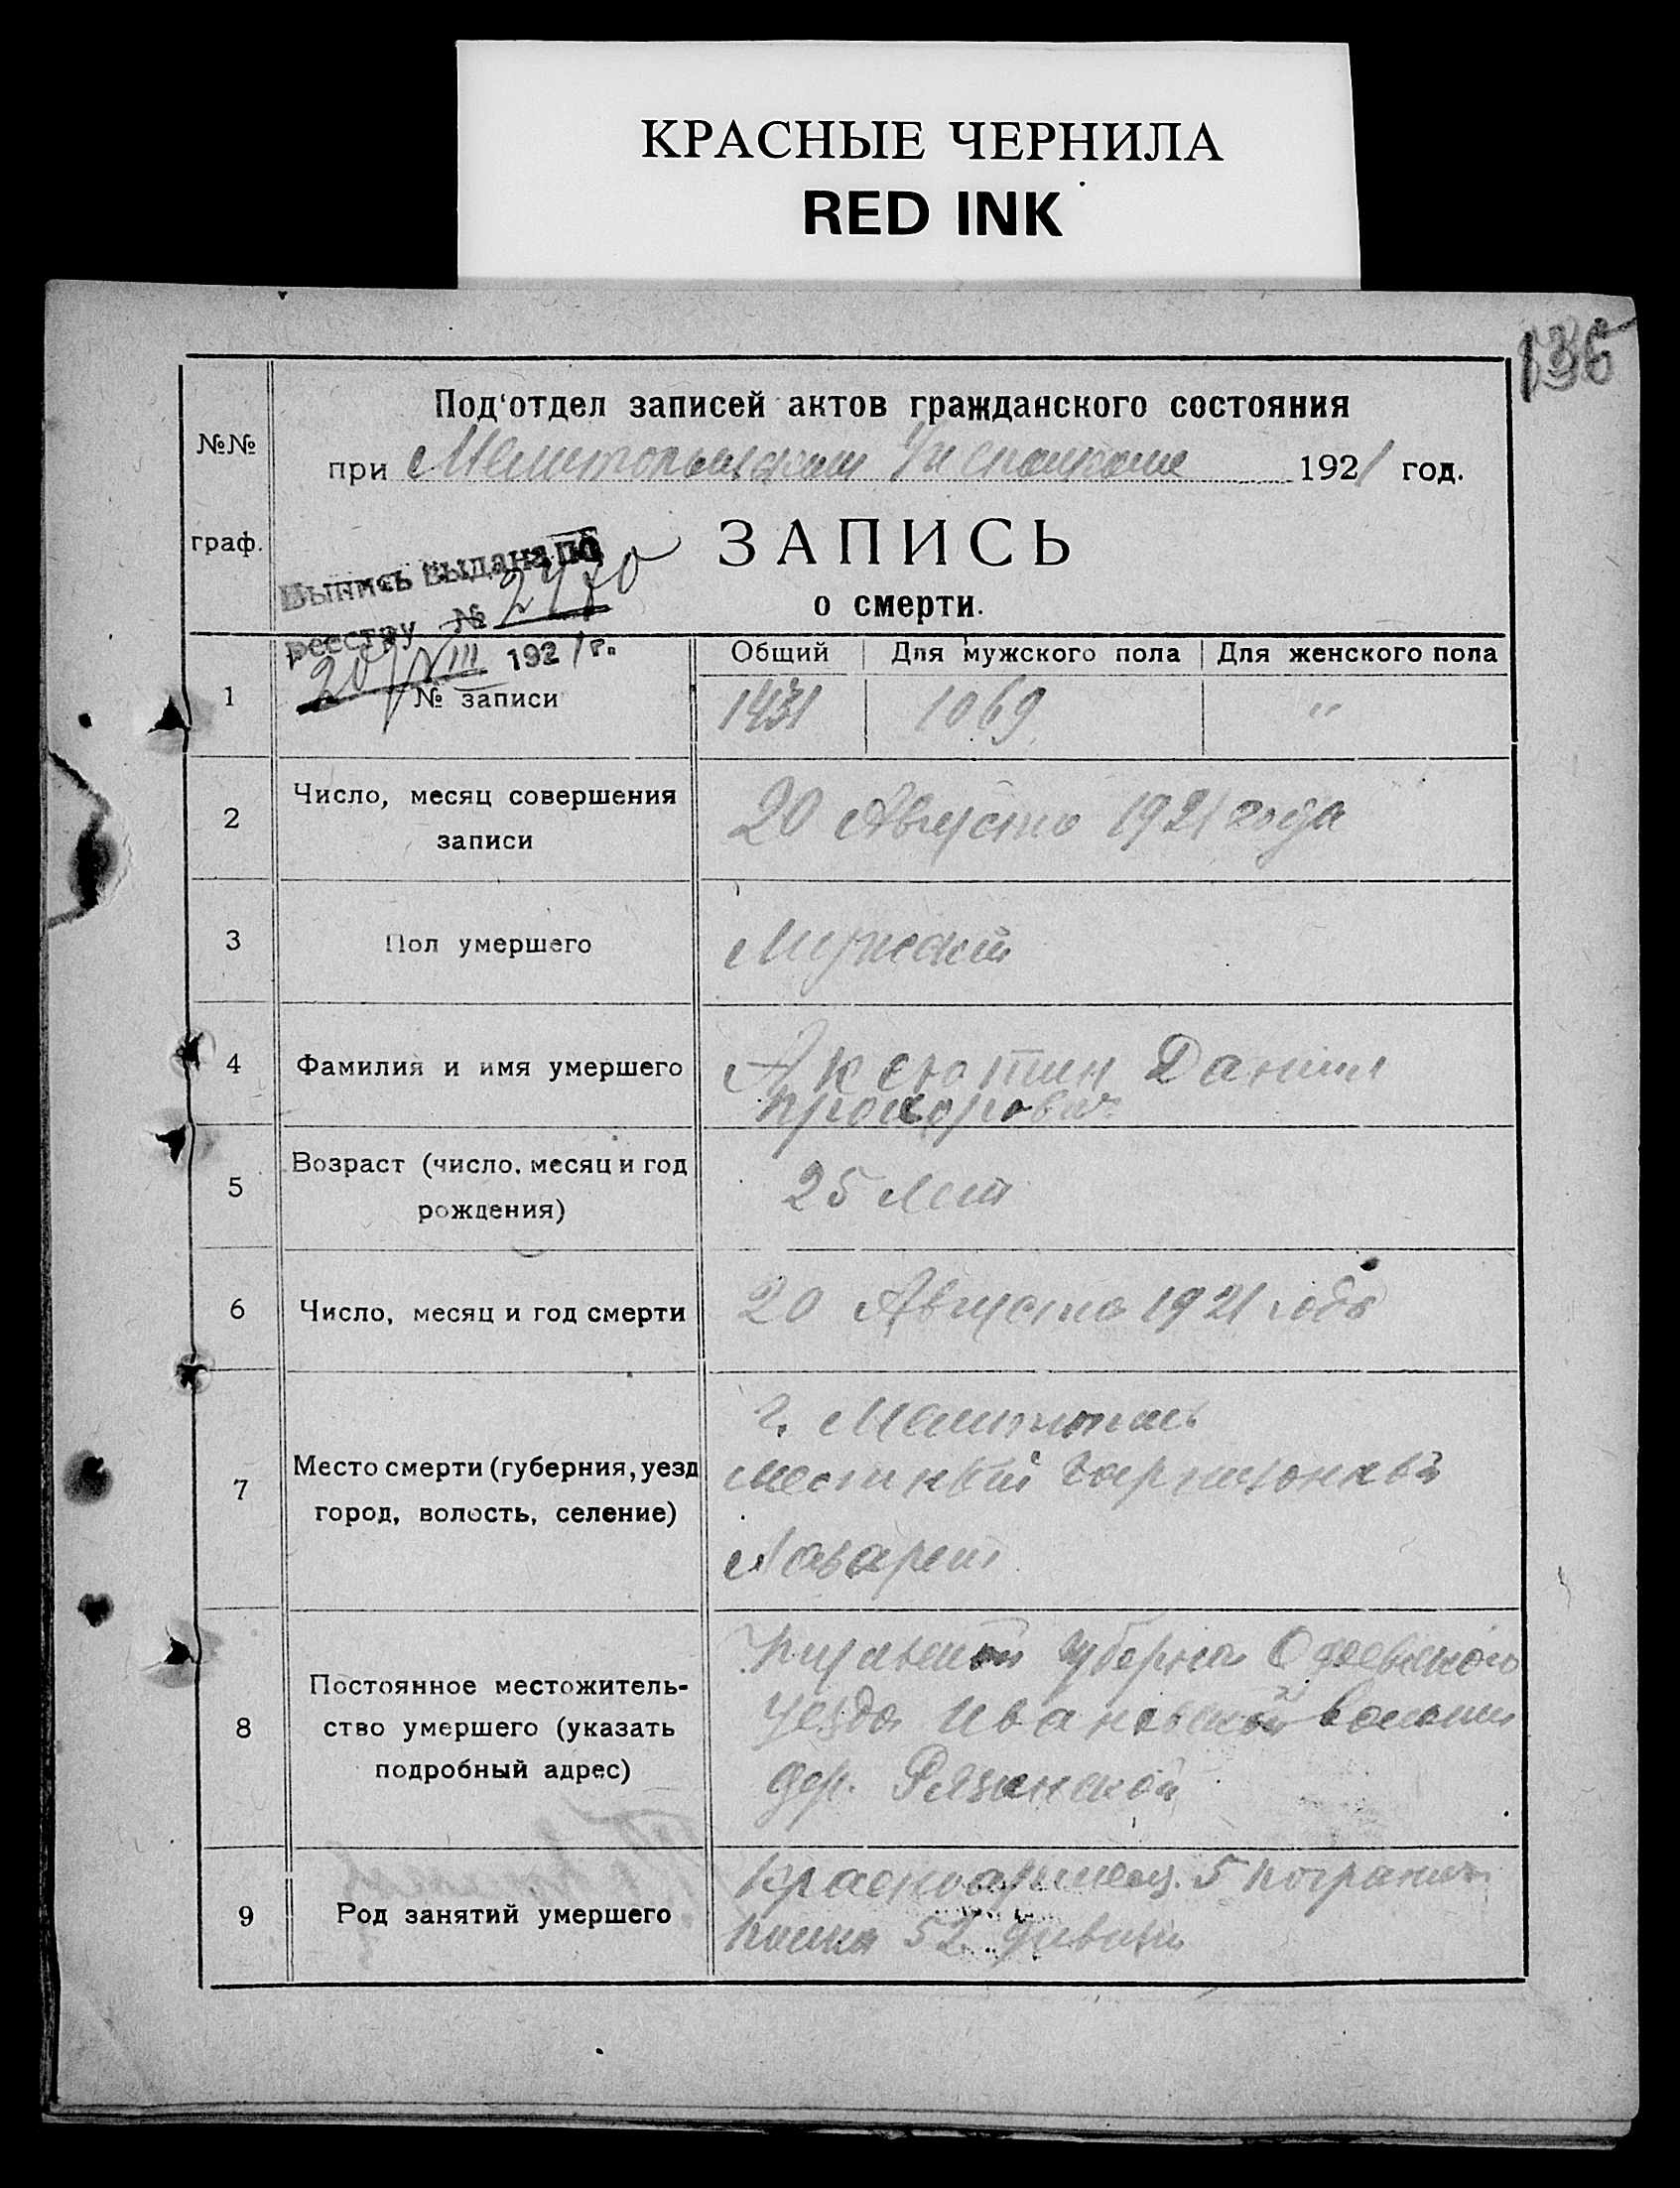 КРАСНЫЕ ЧЕРНИЛА
RED INK
136
№№
граф.
Под‘отдел записей актов гражданского состояния
при Мелитопольском Уисполкоме 1921 год.
ЗАПИСЬ
о смерти.
Выпись выдана по
реестру № 2470
20/VIII 1921 г.
Общий Для мужского пола Для женского пола
1 № записи 1431 1069 "
2 Число, месяц совершения
записи
20 Августа 1921 года
3 Пол умершего Мужской
4 Фамилия и имя умершего Аксютин Данил
Прохорович
5 Возраст (число, месяц и год
рождения)
25 лет
6 Число, месяц и год смерти 20 Августа 1921 года
7 Место смерти (губерния, уезд
город, волость, селение)
г. Мелитополь
местный гарнизонный
Лазарет
8 Постоянное местожитель-
ство умершего (указать
подробный адрес)
губерния
уезда Ивановской волости
дер. Рязанской
9 Род занятий умершего
Красноармеец 5 погранич
полка 52 дивизи